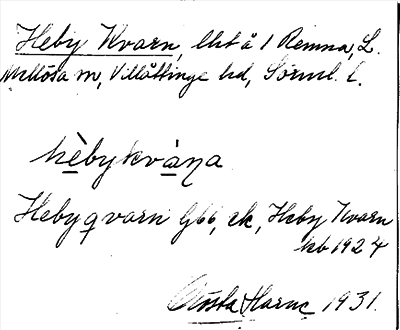 Heby Kvarn, lht å 1 Remna, L.
Mellösa sn, Villåttinge hd, Sörml. l.
hèbykvàṇa
Hebyqvarn Gbb, ek, Heby Kvarn
kb 1924
Gösta Harne 1931.